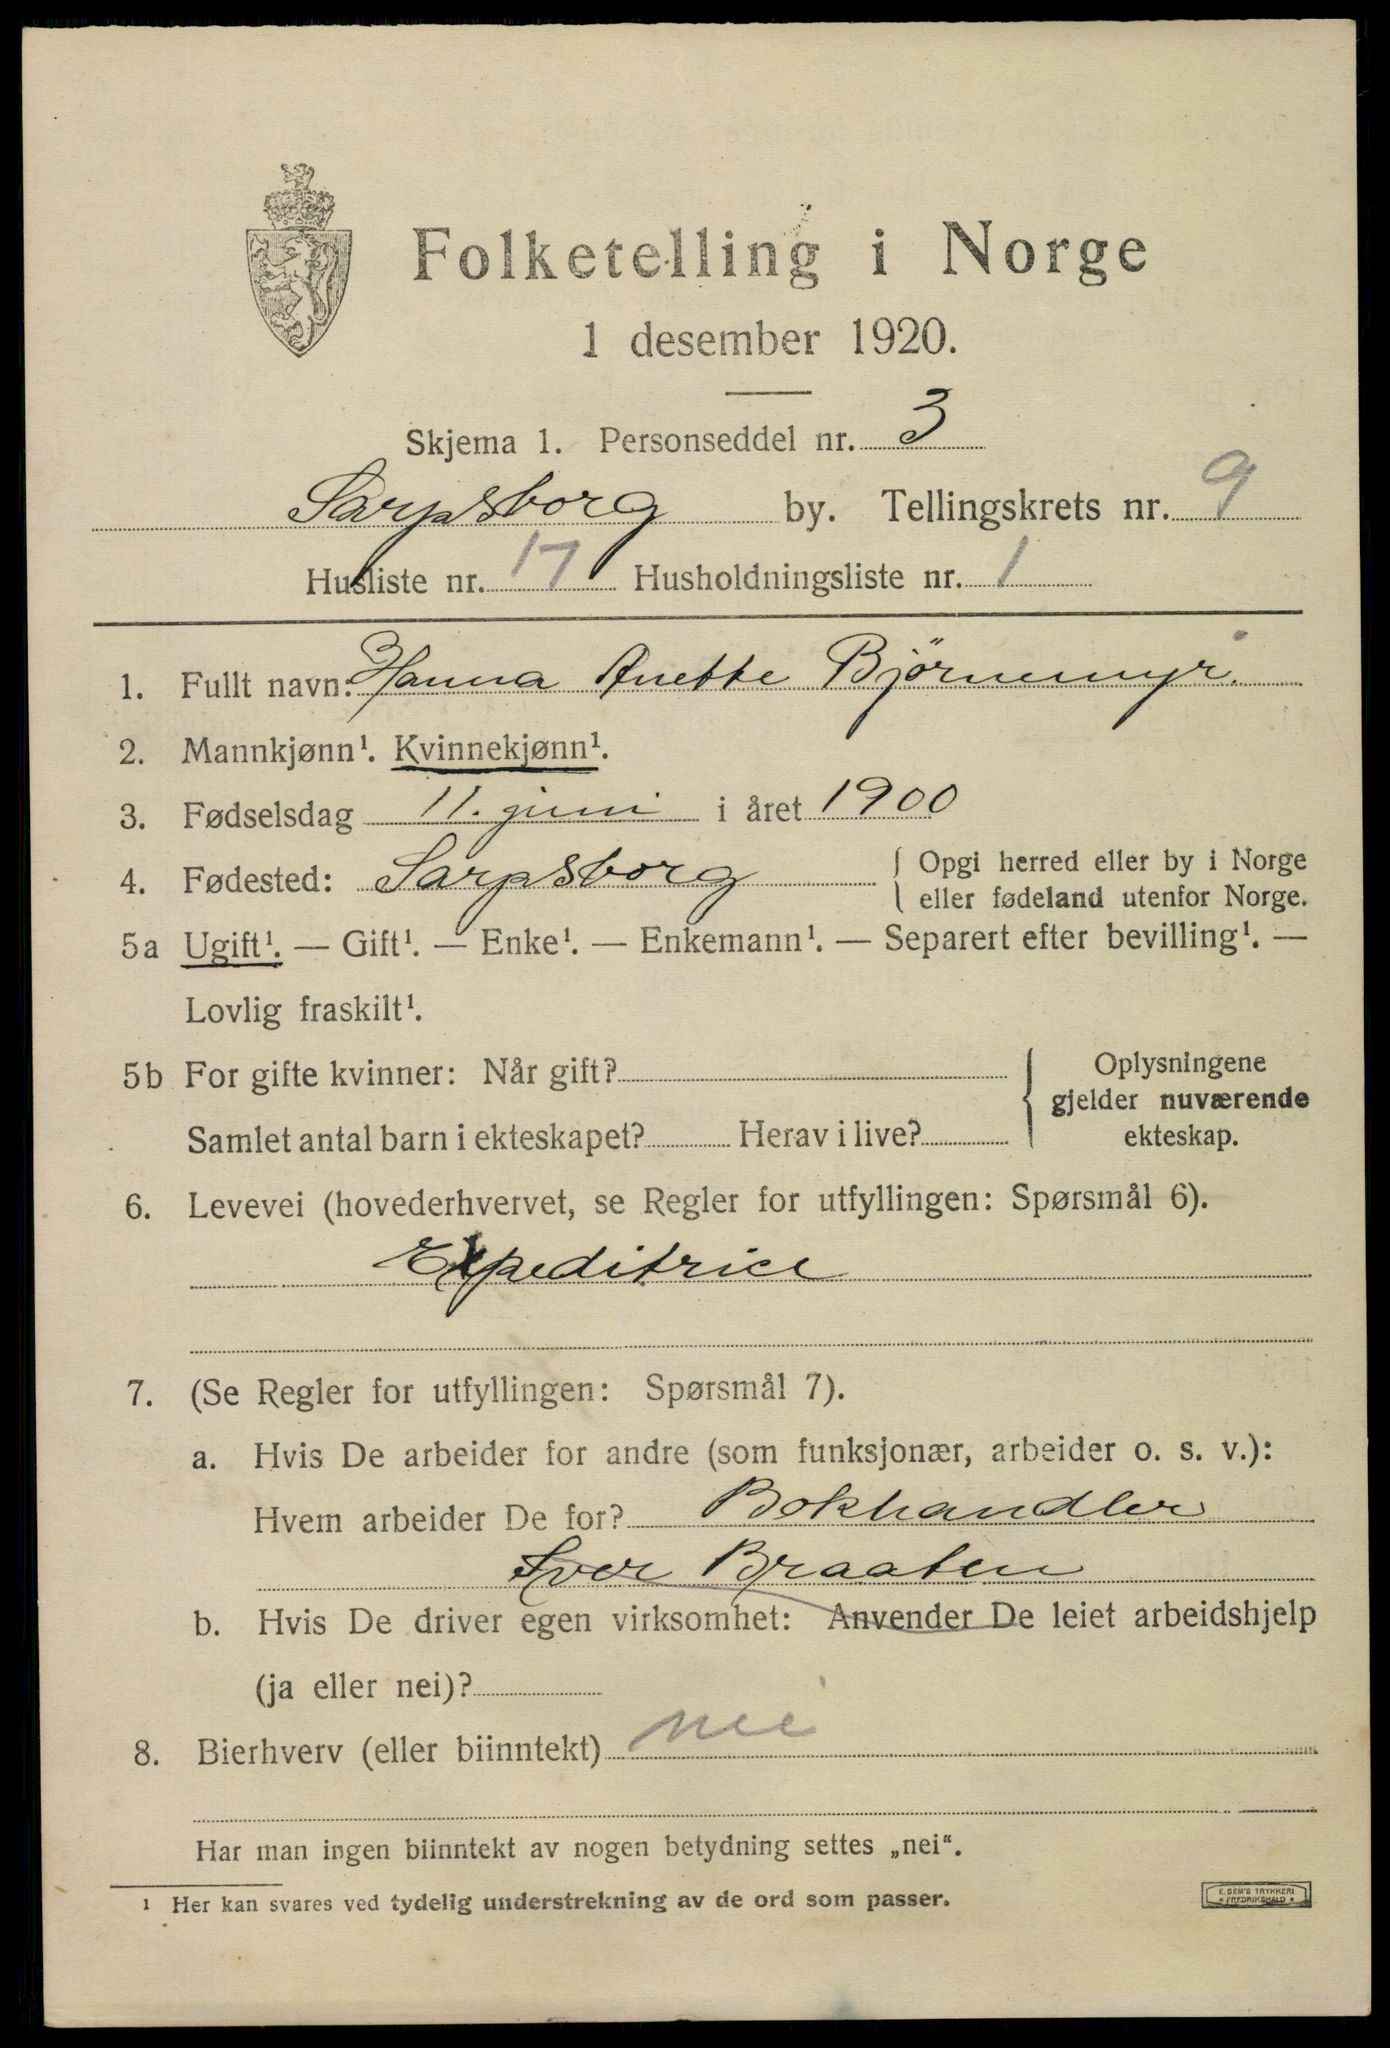 Folketelling i Norge
1 desember 1920.
Skjema 1. Personseddel nr. 3
Sarpsborg by. Tellingskrets nr. 9
Husliste nr. 17 Husholdningsliste nr. 1
1. Fullt navn: Hanna Anette Björnemyr.
2. Mannkjønn¹. Kvinnekjønn¹.
3. Fødselsdag 11. juni i året 1900
4. Fødested: Sarpsborg { Opgi herred eller by i Norge
eller fødeland utenfor Norge.
5a Ugift¹. — Gift¹. — Enke¹. — Enkemann¹. — Separert efter bevilling¹. —
Lovlig fraskilt¹.
5b For gifte kvinner: Når gift? { Oplysningene
gjelder nuværende
Samlet antal barn i ekteskapet? Herav i live? ekteskap.
6. Levevei (hovederhvervet, se Regler for utfyllingen: Spørsmål 6).
Expeditrice
7. (Se Regler for utfyllingen: Spørsmål 7).
a. Hvis De arbeider for andre (som funksjonær, arbeider o. s. v.):
Hvem arbeider De for? Bokhandler
Iver Braaten
b. Hvis De driver egen virksomhet: Anvender De leiet arbeidshjelp
(ja eller nei)?
8. Bierhverv (eller biinntekt) nei
Har man ingen biinntekt av nogen betydning settes „nei“.
¹ Her kan svares ved tydelig understrekning av de ord som passer.
E. SEM'S TRYKKERI
* FREDRIKSHALD *